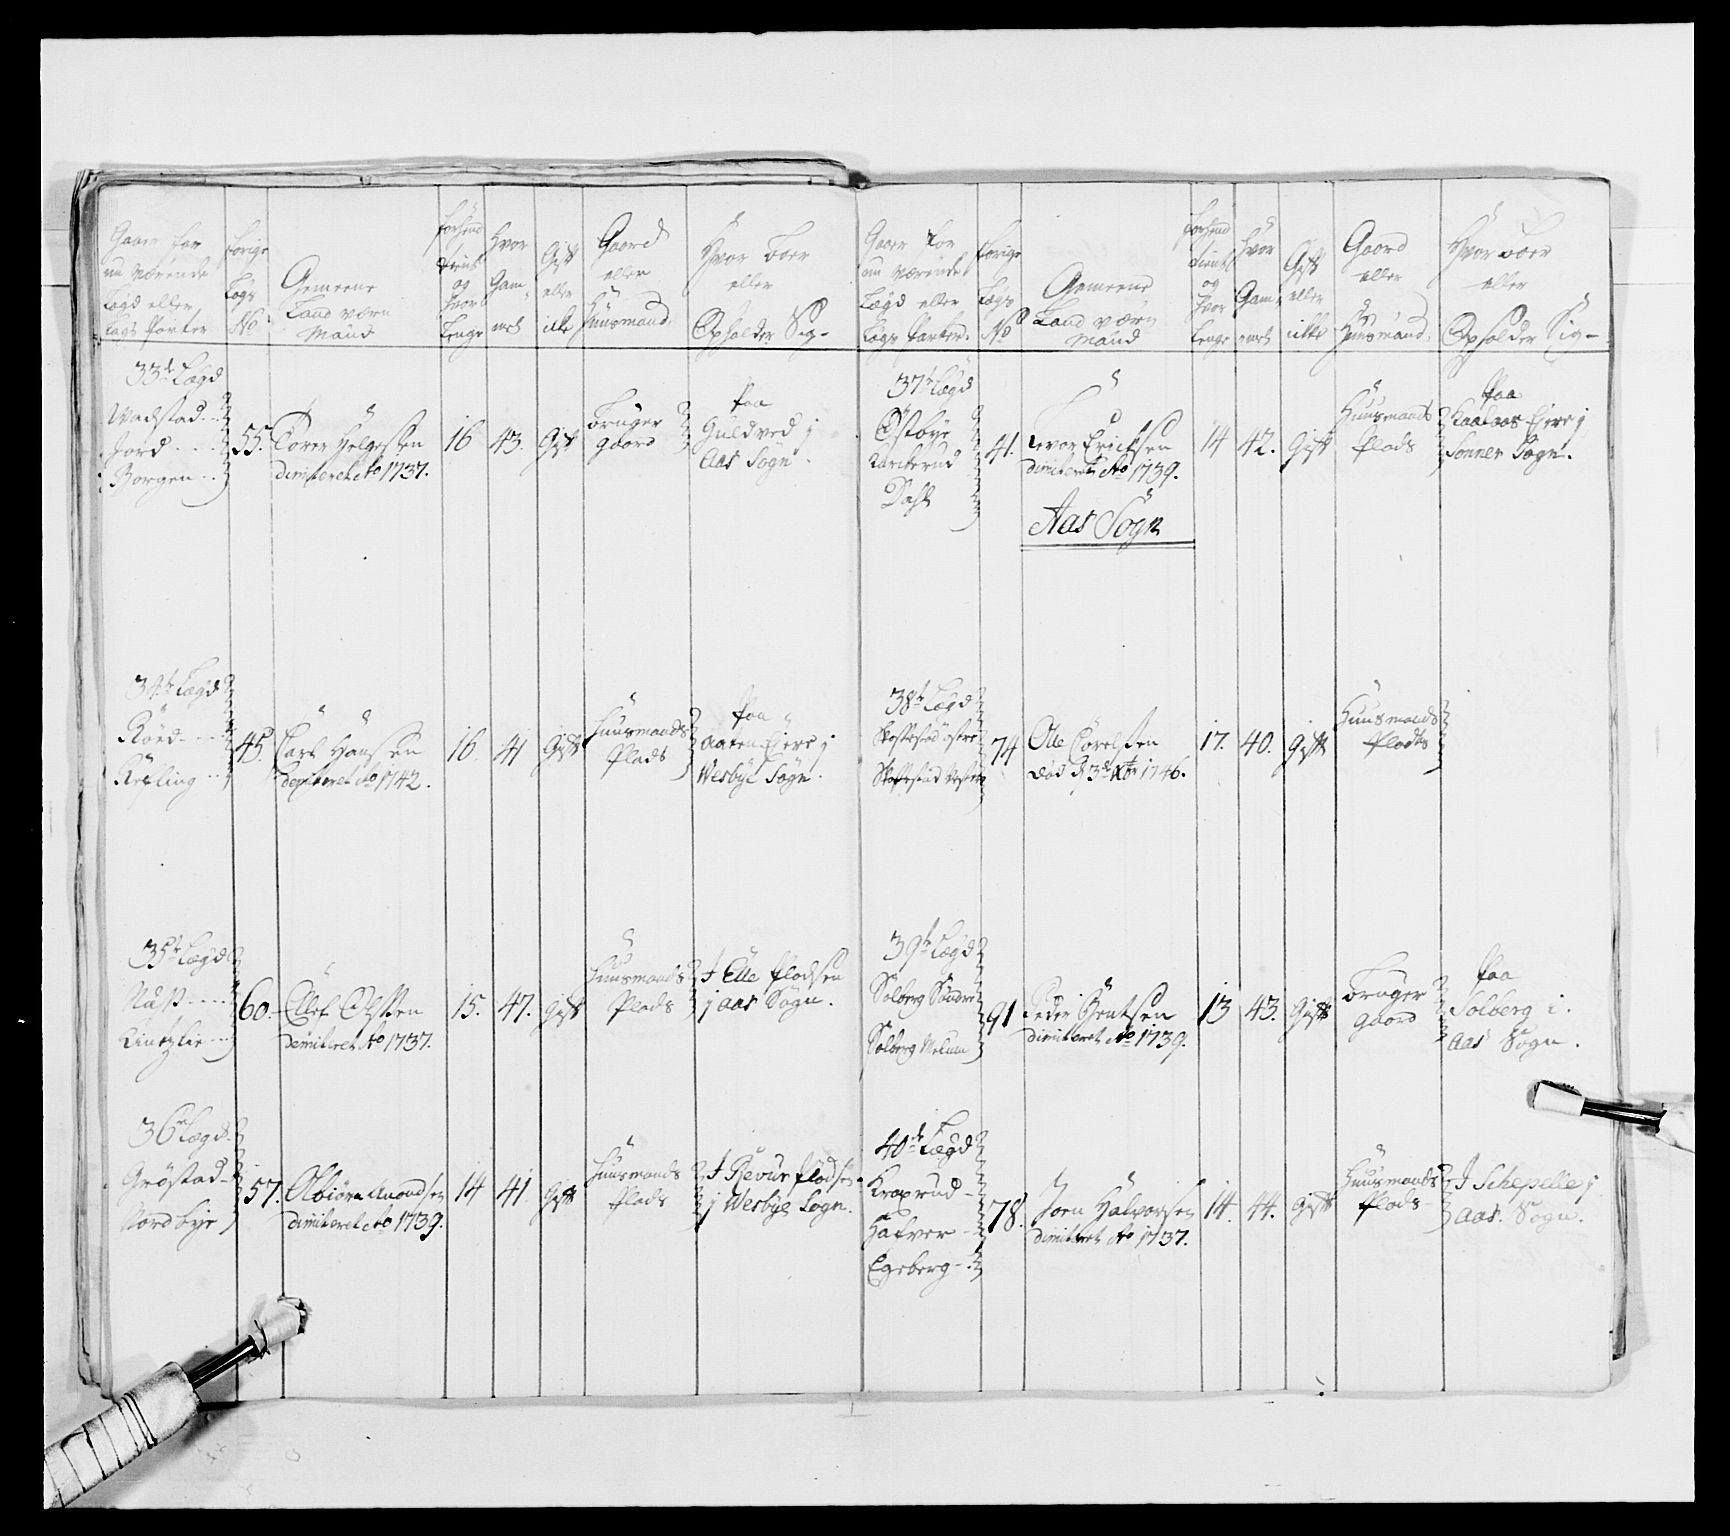 Gaarer for
nu værende
Lægd eller
Lægs Parter
forige
Lægs
No
Gemeene
Land værn
Mænd
forhend
tient
og
hvor
lenge
Hvor
Gam-
mel
Gift
eller
ikke
Gaord
eller
Huusmand
Hvor boer
eller
Opholder Sig-
33te Lægd
Wadstad
Jord
Borgen
55.
Torer Helgesen
dimiteret Ao 1737.
16
43.
Gift
bruger
gaord
paa
Guldved j
Aas Sogn.
34te Lægd
Röed
Kösling
45.
Carl Hanssen
dimiteret Ao 1742.
16.
41
Gift
Huusmands
Plads
paa
Aaren Eiere j
Wesbye Sogn.
35te Lægd
Næss
60.
Ellef Olssen
dimiteret Ao 1737.
15.
47.
Gift
Huusmands
Plads
J Elle pladsen
j Aas Sogn.
36te Lægd
Gröstad
Nordbye
57.
Olbiörn Amondsen
dimiteret Ao 1739.
14
41.
Gift
Huusmands
Plads
J Revur pladsen
j Wesbye Sogn.
Gaarer for
nu værende
Lægd eller
Lægs Parter.
forige
Lægs
No
Gemeene
Land værn
Mænd
forhend
tient
og
hvor
lenge
Hvor
Gam-
mel
Gift
eller
ikke
Gaord
eller
Huusmand.
Hvor boer
eller
Opholder Sig-
37te Lægd
Östbye
Karterud
Dahl
41.
Iver Ericksen
dimiteret Ao 1739.
14
42.
Gift
Huusmands
Plads
paa
Kaalaas Eiere j
Sonner Sogn.
Aas Sogn
38te Lægd
Skoftestad östre
Skoftestad Vestre
74
Olle Törelsen
död d 3de Xbr 1746.
17.
40.
Gift
Huusmands
Plads
39te Lægd
Solberg Söndre
Solberg Melum
91
Peder Gentsen
dimiteret Ao 1739.
13
43.
Gift
bruger
gaord
paa
Solberg i.
Aas Sogn.
40de Lægd
Kroxrud
Hafver
Egeberg
78.
Joen Halvorsen
dimiteret Ao 1737.
14.
44.
Gift
Huusmands
Plads
J Schepelle j
Aas. Sogn.